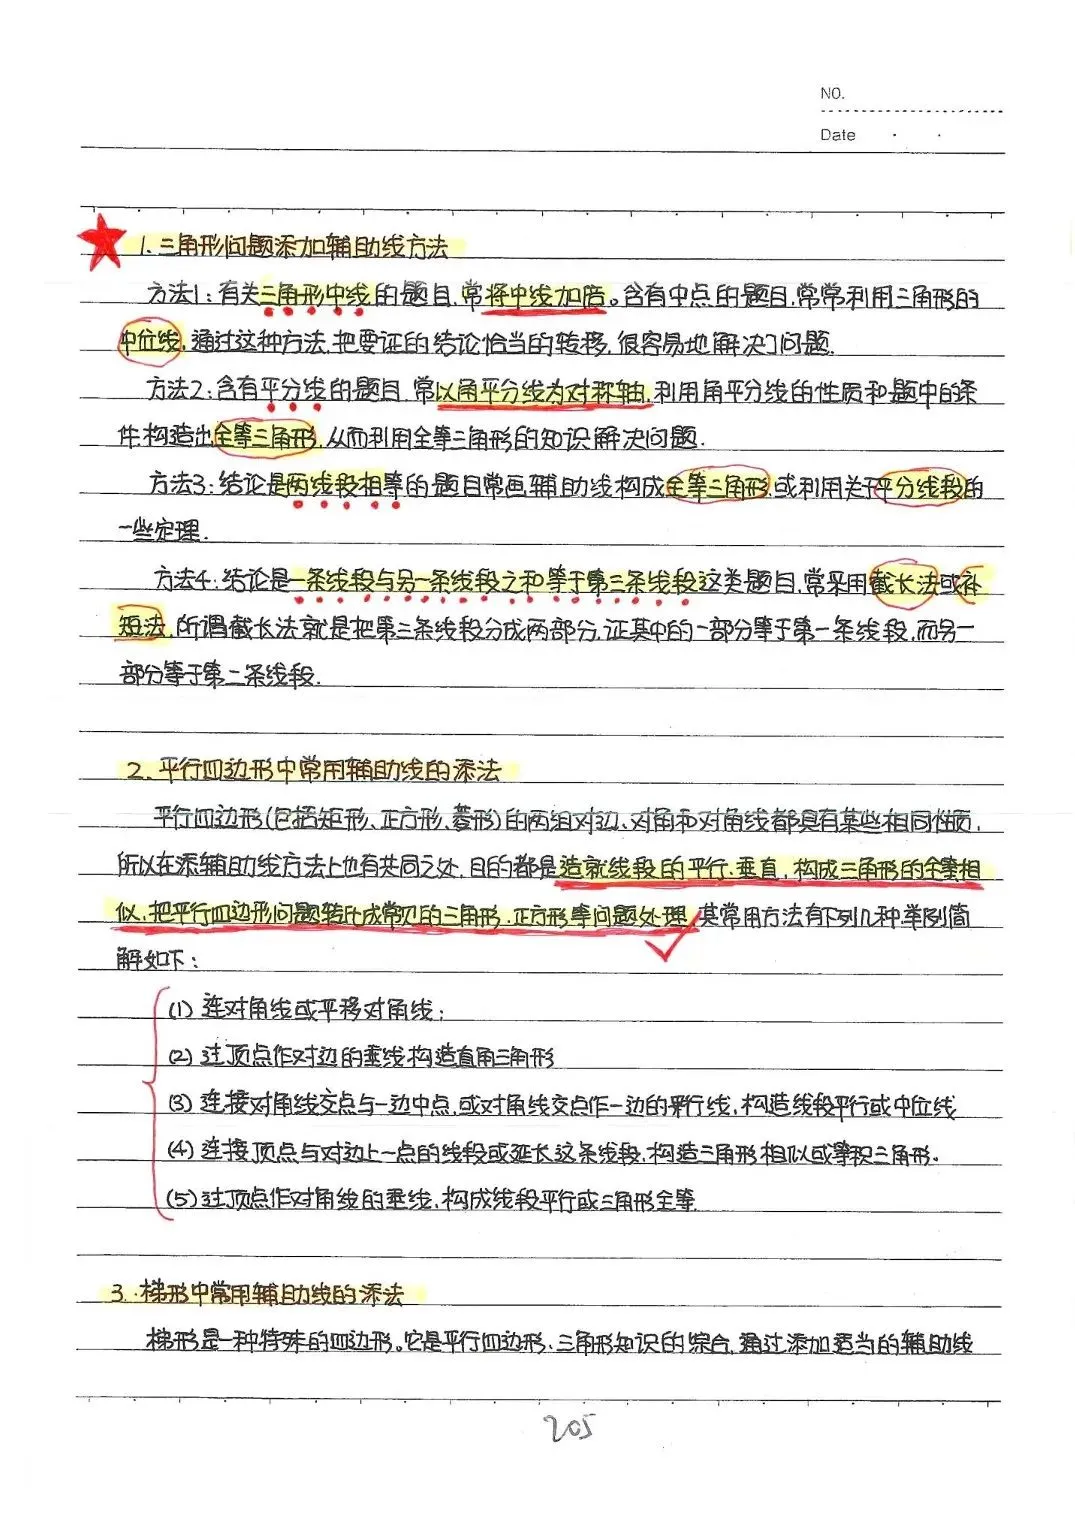 NO.
Date
1.三角形问题添加辅助线方法
方法1:有关三角形中线的题目,常将中线加倍。含有中点的题目,常常利用三角形的
中位线,通过这种方法,把要证的结论恰当的转移,很容易地解决了问题.
方法2:含有平分线的题目,常以角平分线为对称轴,利用角平分线的性质和题中的条
件构造出全等三角形,从而利用全等三角形的知识解决问题.
方法3:结论是两线段相等的题目常画辅助线构成全等三角形,或利用关于平分线段的
一些定理.
方法4:结论是一条线段与另一条线段之和等于第三条线段这类题目,常采用截长法或补
短法,所谓截长法就是把第三条线段分成两部分,证其中的一部分等于第一条线段,而另一
部分等于第二条线段.
2、平行四边形中常用辅助线的添法
平行四边形(包括矩形、正方形、菱形)的两组对边、对角和对角线都具有某些相同性质,
所以在添辅助线方法上也有共同之处,目的都是造就线段的平行、垂直,构成三角形的全等相
似,把平行四边形问题转化成常见的三角形、正方形等问题处理,其常用方法有下列几种举例简
解如下:
(1)连对角线或平移对角线;
(2)过顶点作对边的垂线构造直角三角形
(3)连接对角线交点与一边中点,或对角线交点作一边的平行线,构造线段平行或中位线
(4)连接顶点与对边上一点的线段或延长这条线段,构造三角形相似或等积三角形.
(5)过顶点作对角线的垂线,构成线段平行或三角形全等
3.梯形中常用辅助线的添法
梯形是一种特殊的四边形。它是平行四边形、三角形知识的综合,通过添加适当的辅助线
205